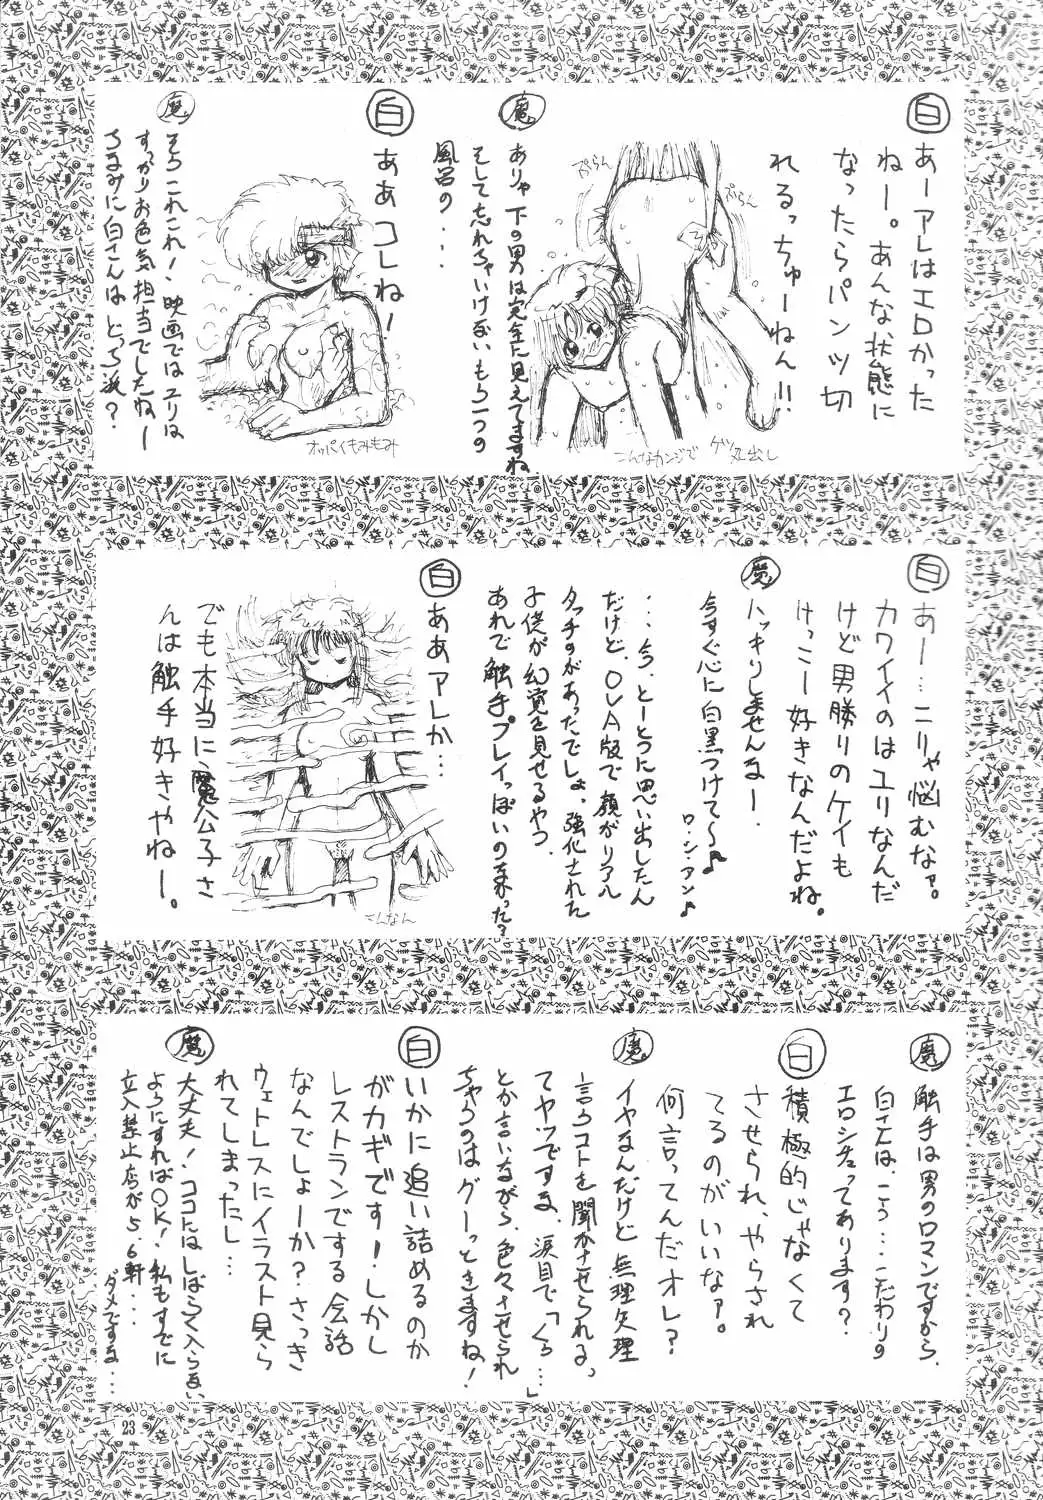 白
あーアレはエロかった
ねー。あんな状態に
なったらパンツ切
れるっちゅーねん!!
ぷらん
ぷらん
こんなカンジで
ケツ丸出し
魔
ありゃ下の男は完全に見えてますね
そして忘れちゃいけないもう一つの
風呂の・・・
白
ああコレね!
オッパイもみもみ
魔
そうこれこれ!映画ではユリは
すっかりお色気担当でしたねー
ちなみに白さんはどっち派?
白
あー…ニりゃ悩むなァ。
カワイイのはユリなんだ
けど男勝りのケイも
けっこー好きなんだよね。
魔
ハッキリしませんなー
今すぐ心に白黒つけて〜♪
ロ・シ・ア・ン♪
・・・今、とーとつに思い出したん
だけど、OVA版で顔がリアル
タッチのがあったでしょ、強化された
子供が幻覚を見せるやつ
あれで触手プレイっぽいの
白
ああアレか…
でも本当に魔公子さ
んは触手好きやねー。
こんなん
魔
触手は男のロマンですから。
白さんは、こう・・・こだわりの
エロシチュってあります?
白
積極的じゃなくて
させられ、やらされ
てるのがいいなァ。
何言ってんだオレ?
魔
イヤなんだけど無理矢理
言うコトを聞かせられる、
てヤツですな、涙目で「くっ…」
とか言いながら、色々させられ
ちゃうのはグーっときますね!
白
いかに追い詰めるのか
がカギですー!しかし
レストランでする会話
なんでしょーか?さっき
ウェトレスにイラスト見ら
れてしまったし…
魔
大丈夫!ココにはしばらく入らない
ようにすればOK!私もすでに
立入禁止店が5、6軒・・・
ダメですな・・・
23